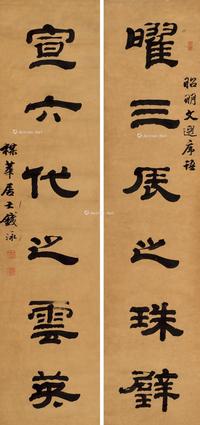 曜三辰之珠璧
昭明文選序語
宣六代之雲英
梅華居士錢泳